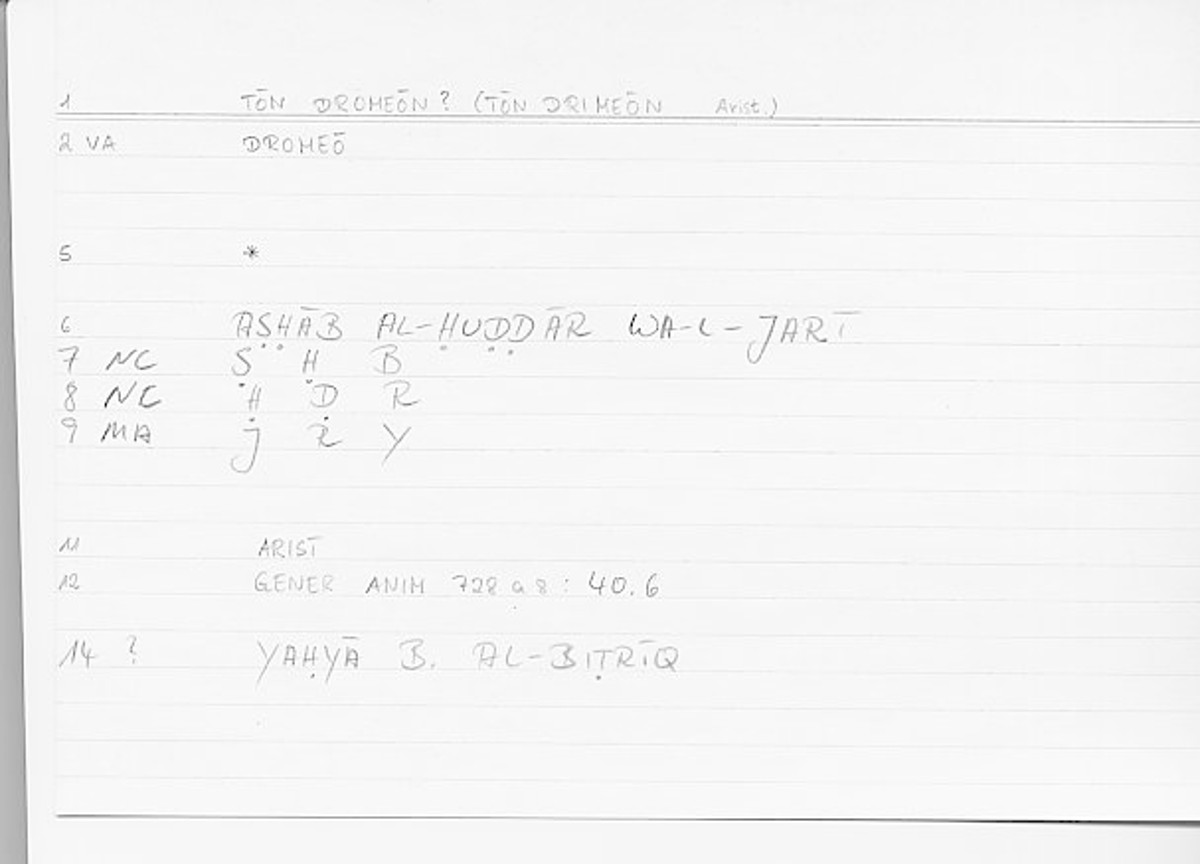 1 TŌN DROMEŌN? (TŌN DRIMEŌN Arist.)
2 VA DROMEŌ
5 *
6 AṢḤĀB AL-ḤUḌḌĀR WA-L-JARĪ
7 NC Ṣ Ḥ B
8 NC Ḥ Ḍ R
9 MA J R Y
11 ARIST
12 GENER ANIM 728 a 8 : 40.6
14 ? YAḤYĀ B. AL-BIṬRĪQ